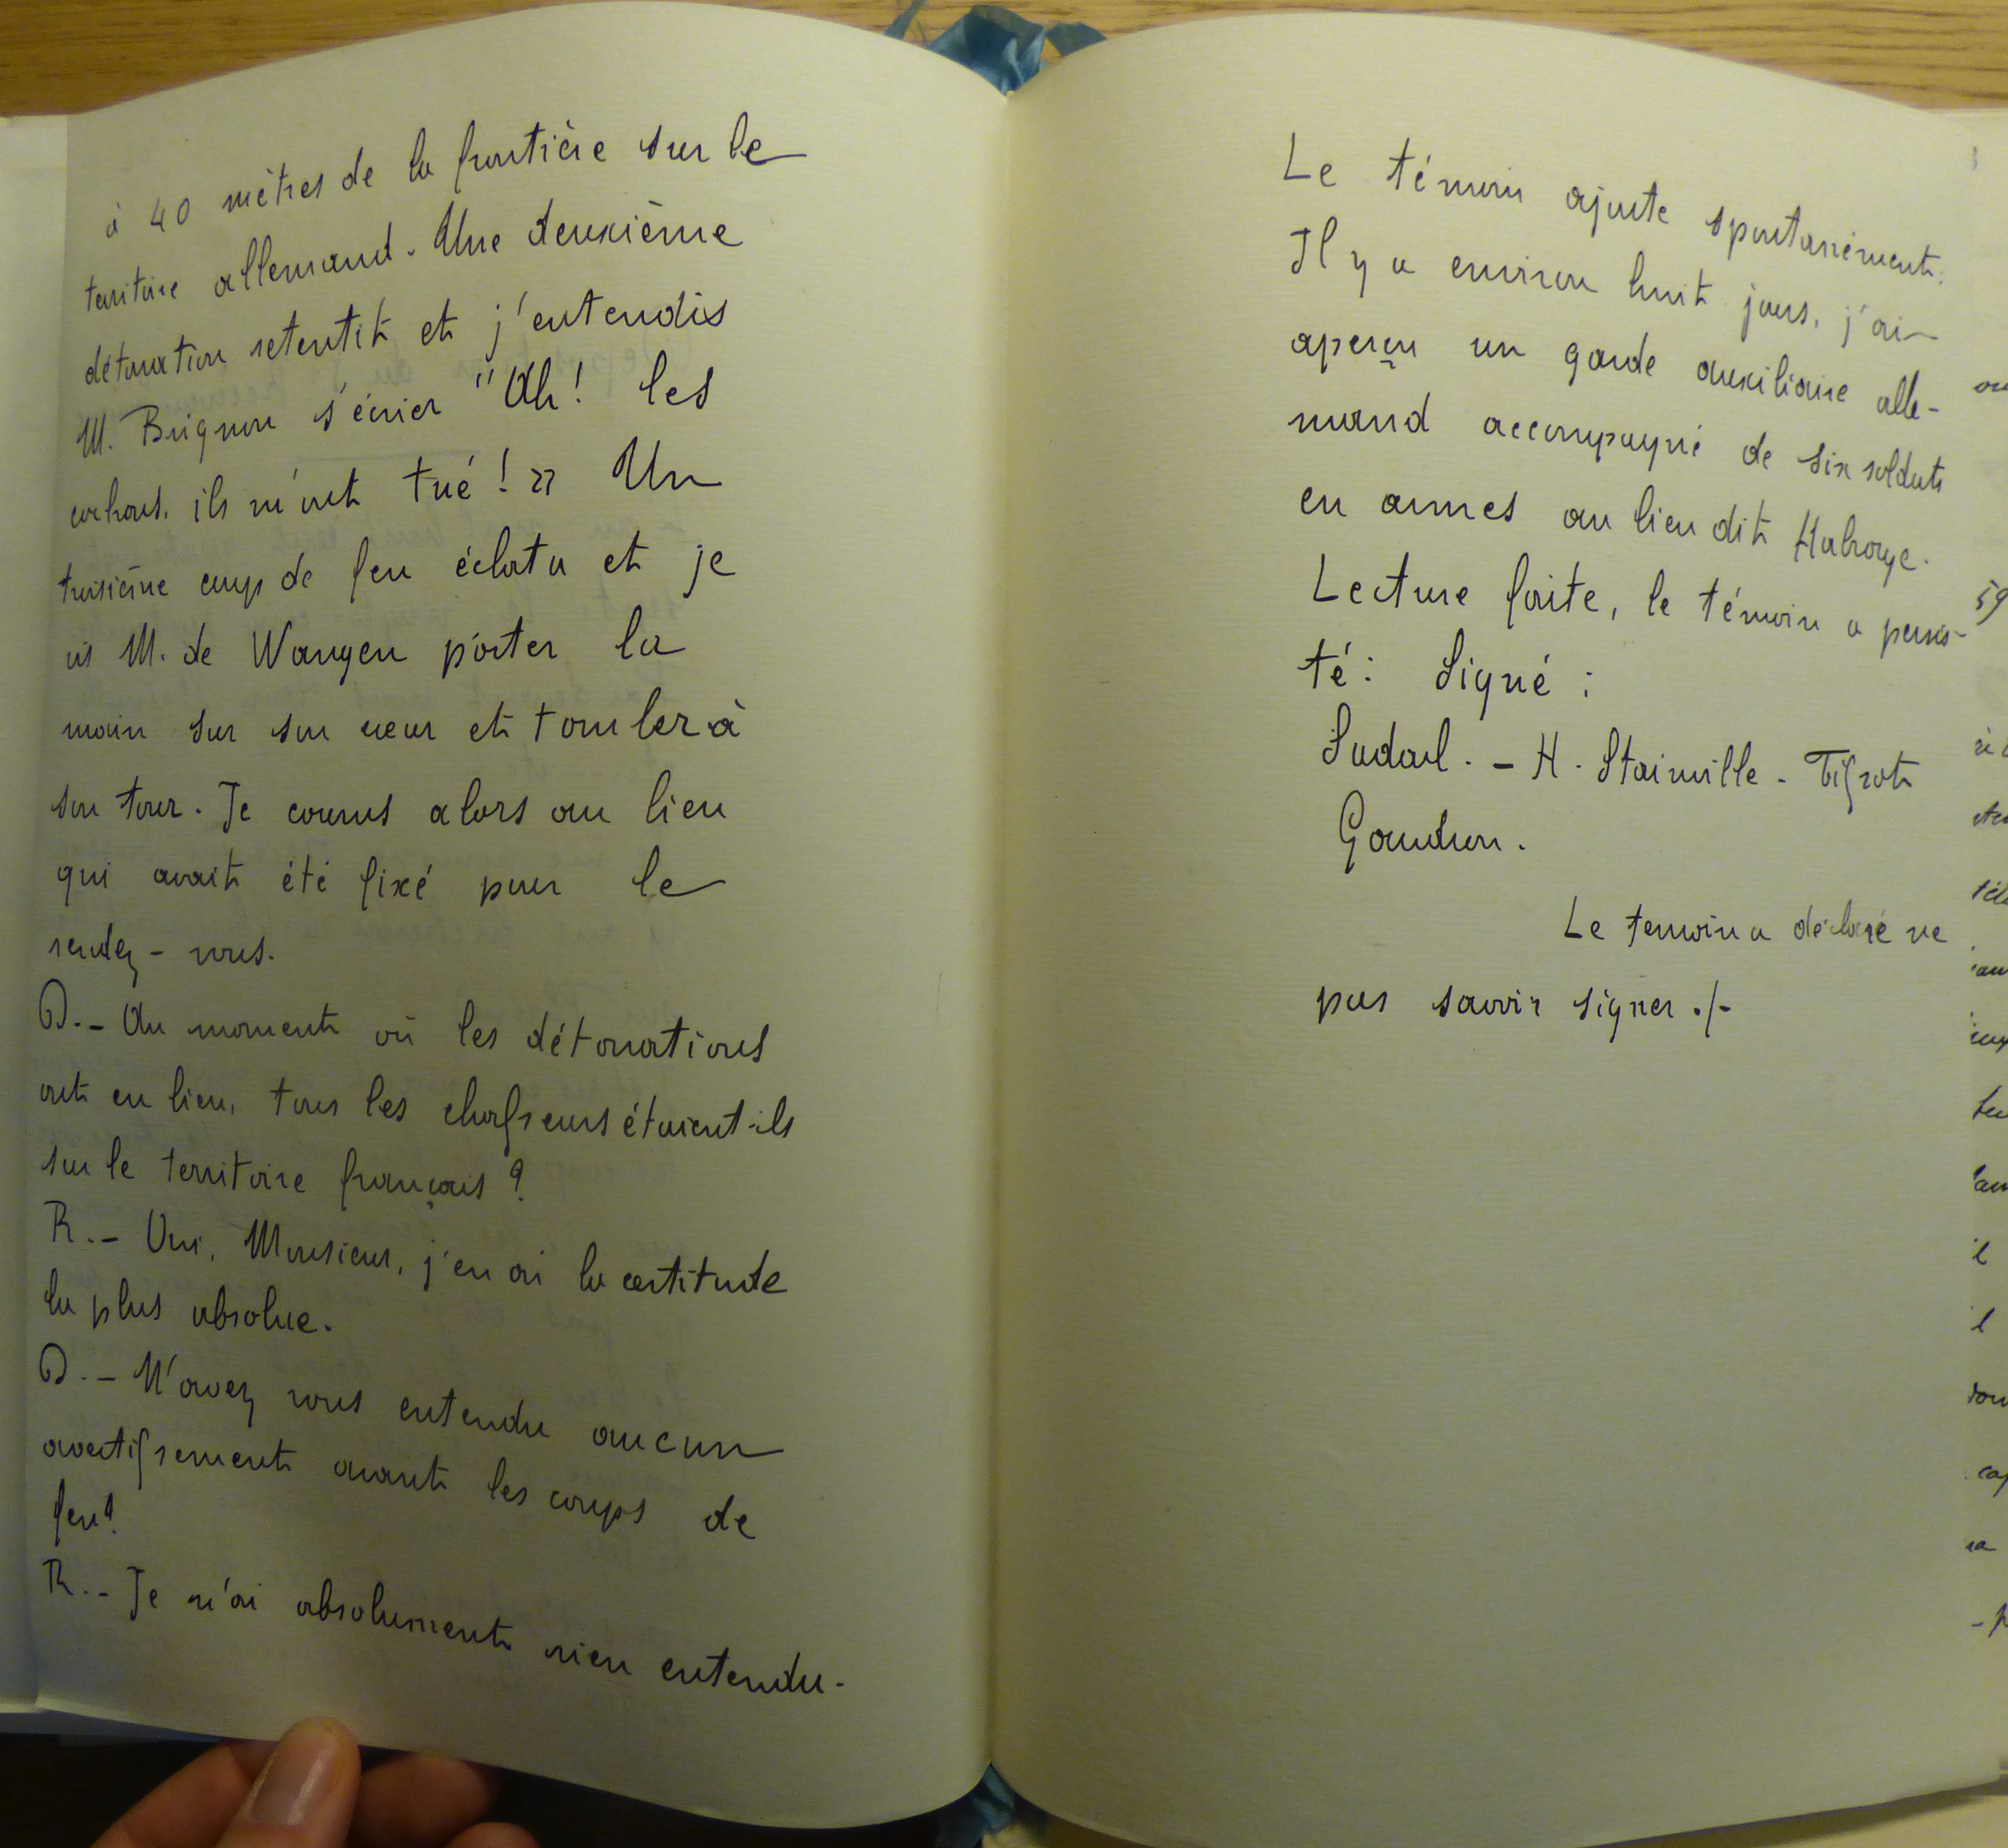 à 40 mètres de la frontière sur le
territoire allemand. Une deuxième
détonation retentit et j'entendis
M. Brignon s'écrier "Ah! les
cochons, ils m'ont tué! » Un
troisième coup de feu éclata et je
vis M. de Wangen porter la
main sur son cœur et tomber à
son tour. Je courus alors au lieu
qui avait été fixé pour le
rendez-vous.
D.- Au moment où les détonations
ont eu lieu, tous les chasseurs étaient-ils
sur le territoire français?
R.- Oui, Monsieur, j'en ai la certitude
la plus absolue.
D.- N'avez vous entendu aucun
avertissement avant les coups de
feu?
R.- Je n'ai absolument rien entendu.
Le témoin ajoute spontanément:
Il y a environ huit jours, j'ai
aperçu un garde auxiliaire alle-
mand accompagné de six soldats
en armes au lieu dit
Lecture faite, le témoin a persis-
té: Signé:
Sadoul. - H. Stainville - Tissot
Gondron.
Le temoin a déclaré ne
pas savoir signer ./-
59